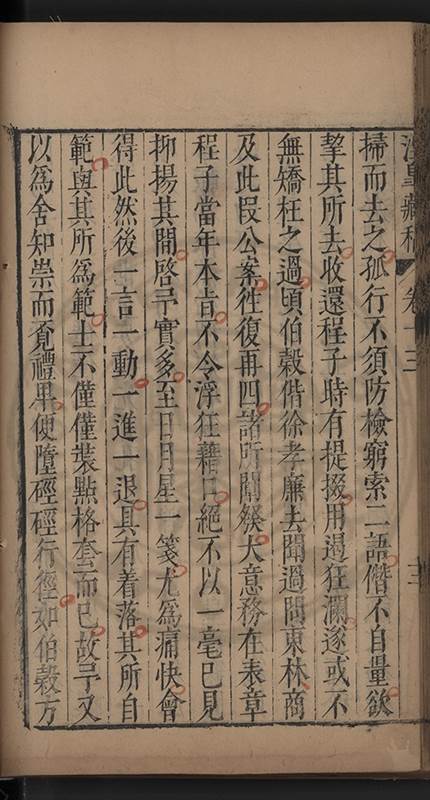 涇皋藏稿 卷十三 十三
掃而去之孤行不須防檢窮索二語僭不自量欲
挈其所去收還程子時有提掇用遏狂瀾遂或不
無矯枉之過頃伯穀偕徐孝廉去聞過問東林商
及此段公案往復再四諸所闡發大意務在表章
程子當年本旨不令浮狂藉口絕不以一毫已見
抑揚其間啓予實多至日用星一箋尤為痛快會
得此然後一言一動一進一退具有着落其所自
範與其所為範士不僅僅裝點格套而已故予又
以為舍知崇而覔禮卑便墮硜硜行徑如伯穀方